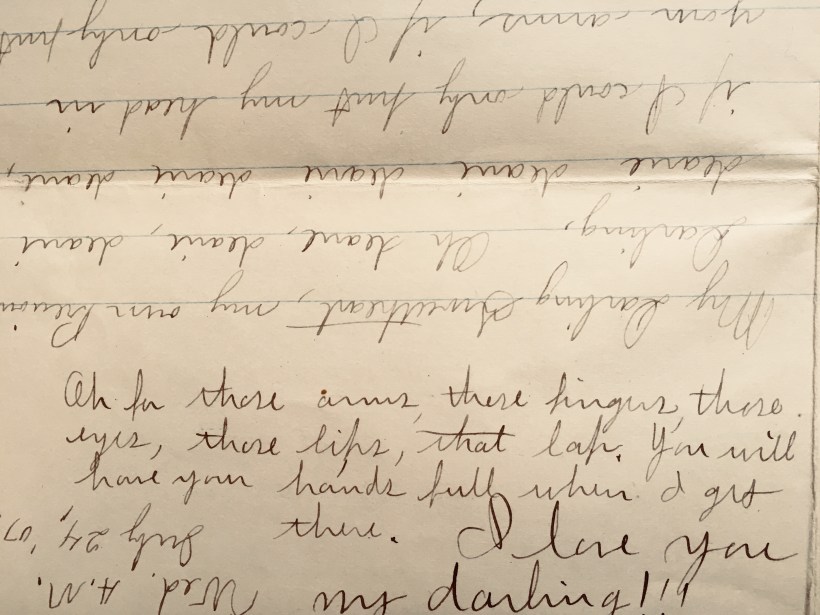 Oh for those arms, those fingers, those
eyes, those lips, that lap. You will
have your hands full when I get
there. I love you
my darling!!!
Wed. A.M.
July 24, '07
My darling Sweetheart, my own
Darling, Oh dearie, dearie, dearie
dearie dearie dearie dearie dearie,
if I could only put my head in
your arms, if I could only put